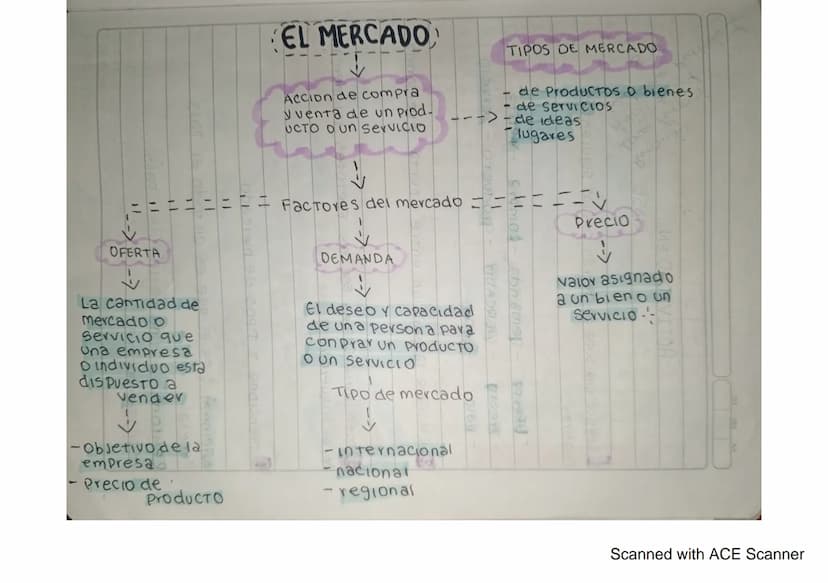 EL MERCADO
TIPOS DE MERCADO
Accion de compra
y venta de un prod-
ucto o un servicio
- de productos o bienes
- de servicios
- de ideas
- lugares
Factores del mercado
OFERTA
DEMANDA
Precio
La cantidad de
mercado o
servicio que
una empresa
o individuo esta
dispuesto a
vender
El deseo y capacidad
de una persona para
comprar un producto
o un servicio
Valor asignado
a un bien o un
servicio
Tipo de mercado
- Objetivo de la
empresa
- Precio de
producto
- internacional
- nacional
- regional
Scanned with ACE Scanner